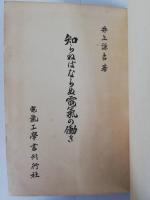 井上謙吉著
知らねばならぬ電氣の働き
電氣工學書刊行社